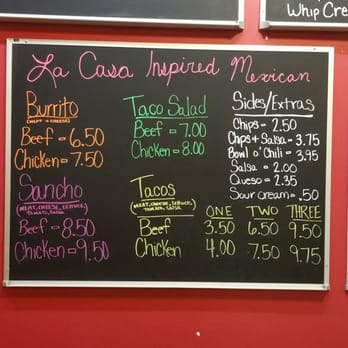 Whip Cre
La Casa Inspired Mexican
Burrito
(MEAT + CHEESE)
Beef - 6.50
Chicken - 7.50
Sancho
(MEAT, CHEESE, LETTUCE,
TOMATO, SALSA)
Beef - 8.50
Chicken - 9.50
Taco Salad
Beef - 7.00
Chicken - 8.00
Tacos
(MEAT, CHEESE, LETTUCE,
TOMATO, SALSA)
ONE TWO THREE
Beef 3.50 6.50 9.50
Chicken 4.00 7.50 9.75
Sides/Extras
Chips - 2.50
Chips + Salsa - 3.75
Bowl o' Chili - 3.95
Salsa - 2.00
Queso - 2.35
Sour Cream - .50